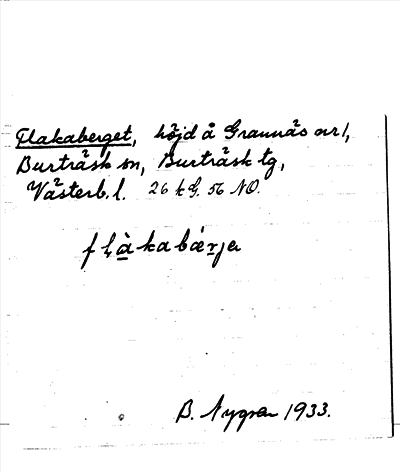 Flakaberget, höjd å Grannäs ar/,
Burträsk sn, Burträsk tg,
Västerb. l. 26 k G. 56 NO.
flàkabærja
B. Nygren 1933.